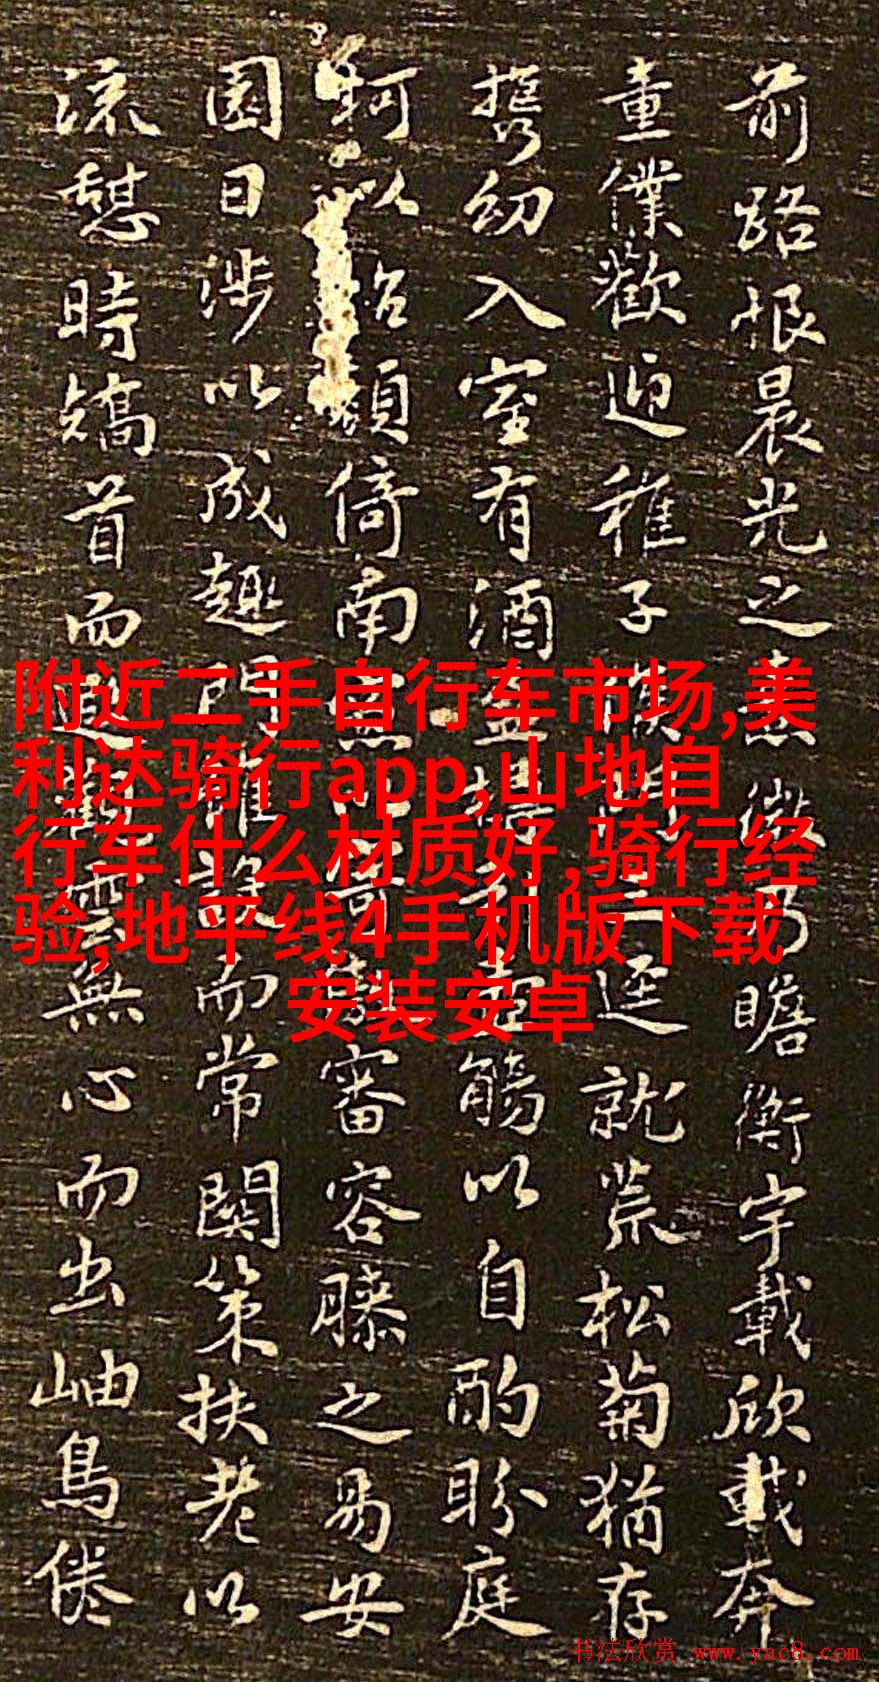 前路恨晨光之熹微乃瞻衡宇載欣載奔
童僕歡迎稚子候門三逕就荒松菊猶存
携幼入室有酒盈樽引壺觴以自酌盼庭
柯以怡顏倚南窓以寄傲審容膝之易安
園日涉以成趣門雖設而常關策扶老以
流憩時矯首而遐觀雲無心而出岫鳥倦
附近二手自行车市场,美
利达骑行app,山地自
行车什么材质好,骑行经
验,地平线4手机版下载
安装安卓
书法欣赏 www.yac8.com